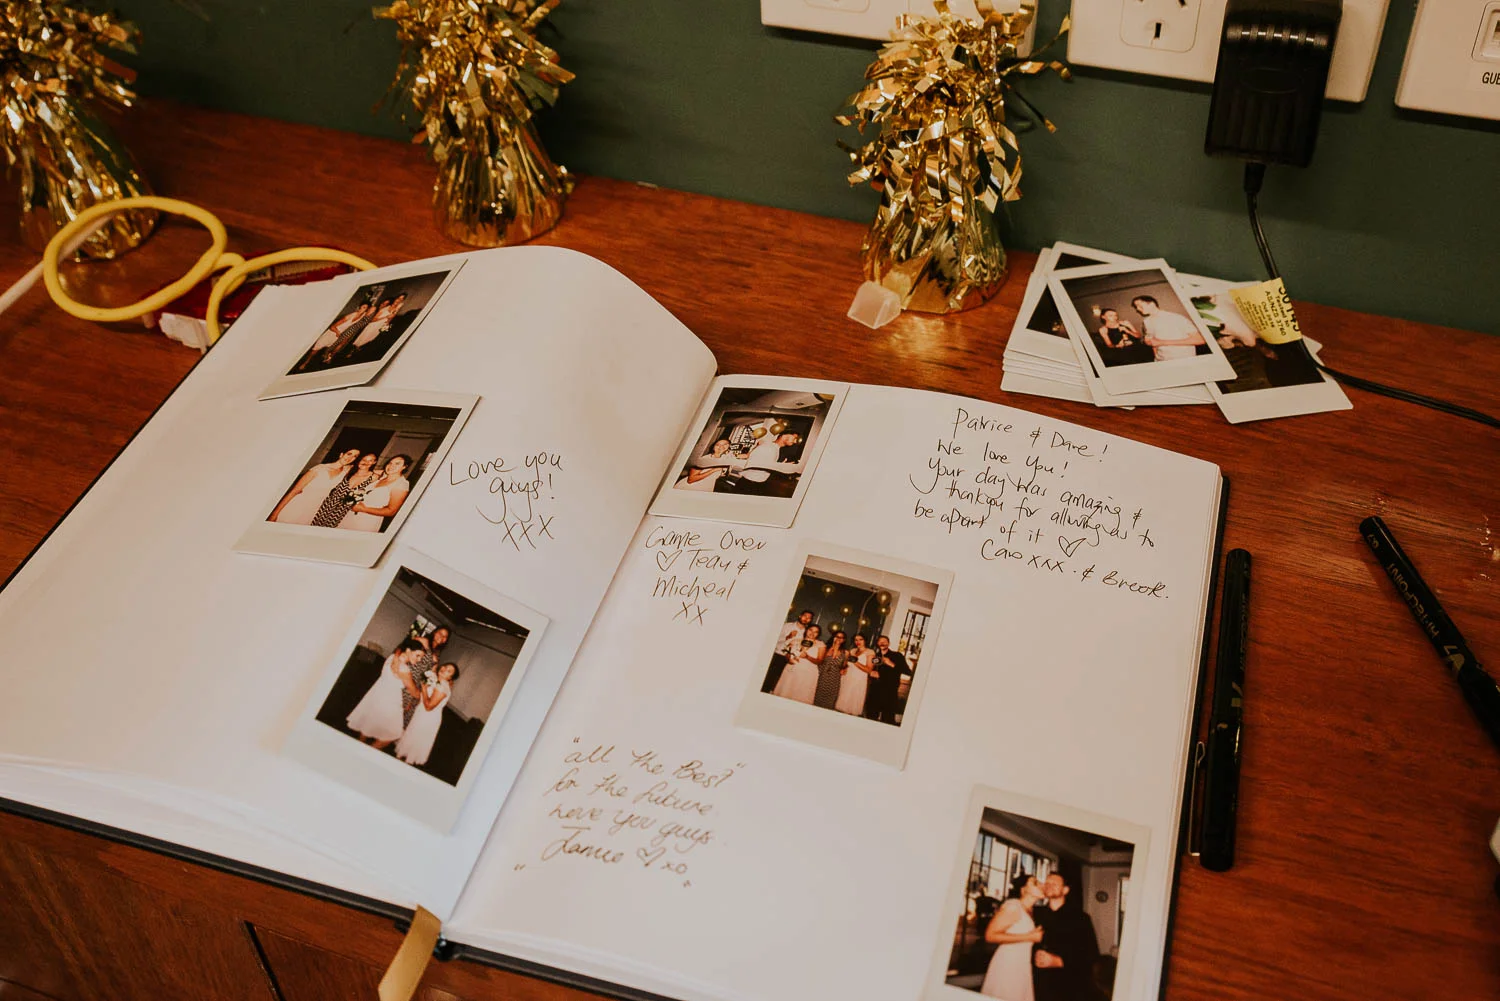 Love you
guys!
xxx
Game Over
♡ Teay &
Micheal
xx
Patrice & Dave!
We love you!
your day was amazing &
thankyou for allwing us to
be apart of it ♡
Caro xxx. & Brook.
"all the Best"
for the future
Love you guys.
Jamie ♡ xo "
AS/NZS 3760
HI-TECPOINT V7